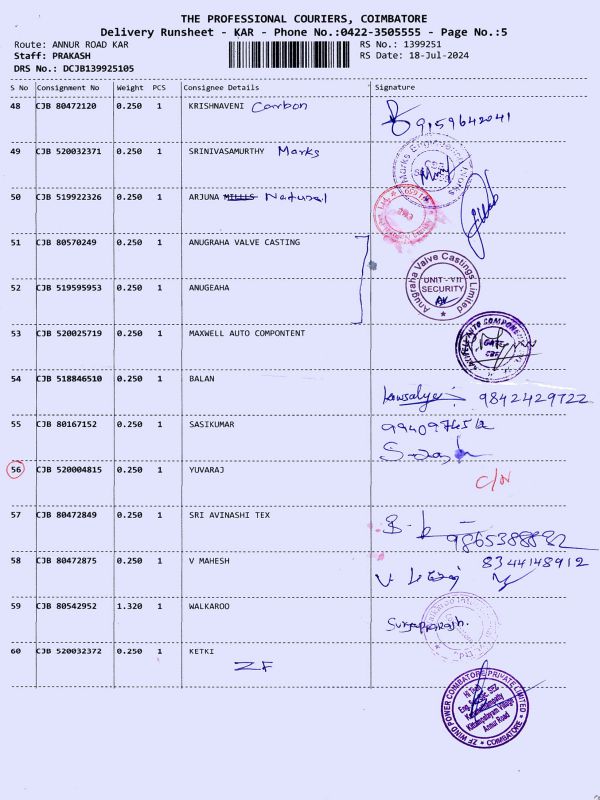 THE PROFESSIONAL COURIERS, COIMBATORE
Delivery Runsheet - KAR - Phone No.:0422-3505555 - Page No.:5
Route: ANNUR ROAD KAR RS No.: 1399251
Staff: PRAKASH RS Date: 18-Jul-2024
DRS No.: DCJB139925105
S No Consignment No Weight PCS Consignee Details Signature
48 CJB 80472120 0.250 1 KRISHNAVENI Carbon
9159642041
49 CJB 520032371 0.250 1 SRINIVASAMURTHY Marks
50 CJB 519922326 0.250 1 ARJUNA MILLS Natural
51 CJB 80570249 0.250 1 ANUGRAHA VALVE CASTING
Anugraha Valve Castings Limited
UNIT - VII
SECURITY
52 CJB 519595953 0.250 1 ANUGEAHA
53 CJB 520025719 0.250 1 MAXWELL AUTO COMPONTENT
54 CJB 518846510 0.250 1 BALAN
Kowsalya 9842429722
55 CJB 80167152 0.250 1 SASIKUMAR
56 CJB 520004815 0.250 1 YUVARAJ
C/N
57 CJB 80472849 0.250 1 SRI AVINASHI TEX
58 CJB 80472875 0.250 1 V MAHESH
8344148912
59 CJB 80542952 1.320 1 WALKAROO
Suryaprakash.
60 CJB 520032372 0.250 1 KETKI
ZF
ZF WIND POWER COIMBATORE PRIVATE LIMITED
Annur Road
COIMBATORE